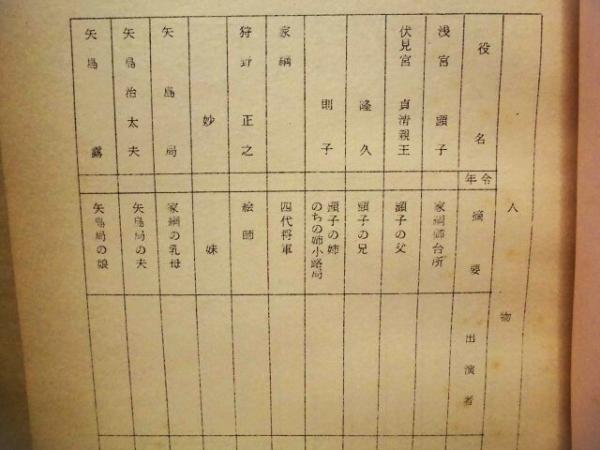 人物
役名 年令 摘要 出演者
浅宮 顕子 家綱御台所
伏見宮 貞清親王 顕子の父
隆久 顕子の兄
則子 顕子の姉 のちの姉小路局
家綱 四代将軍
狩野 正之 絵師
妙 妹
矢島局 家綱の乳母
矢島治太夫 矢島局の夫
矢島 露 矢島局の娘